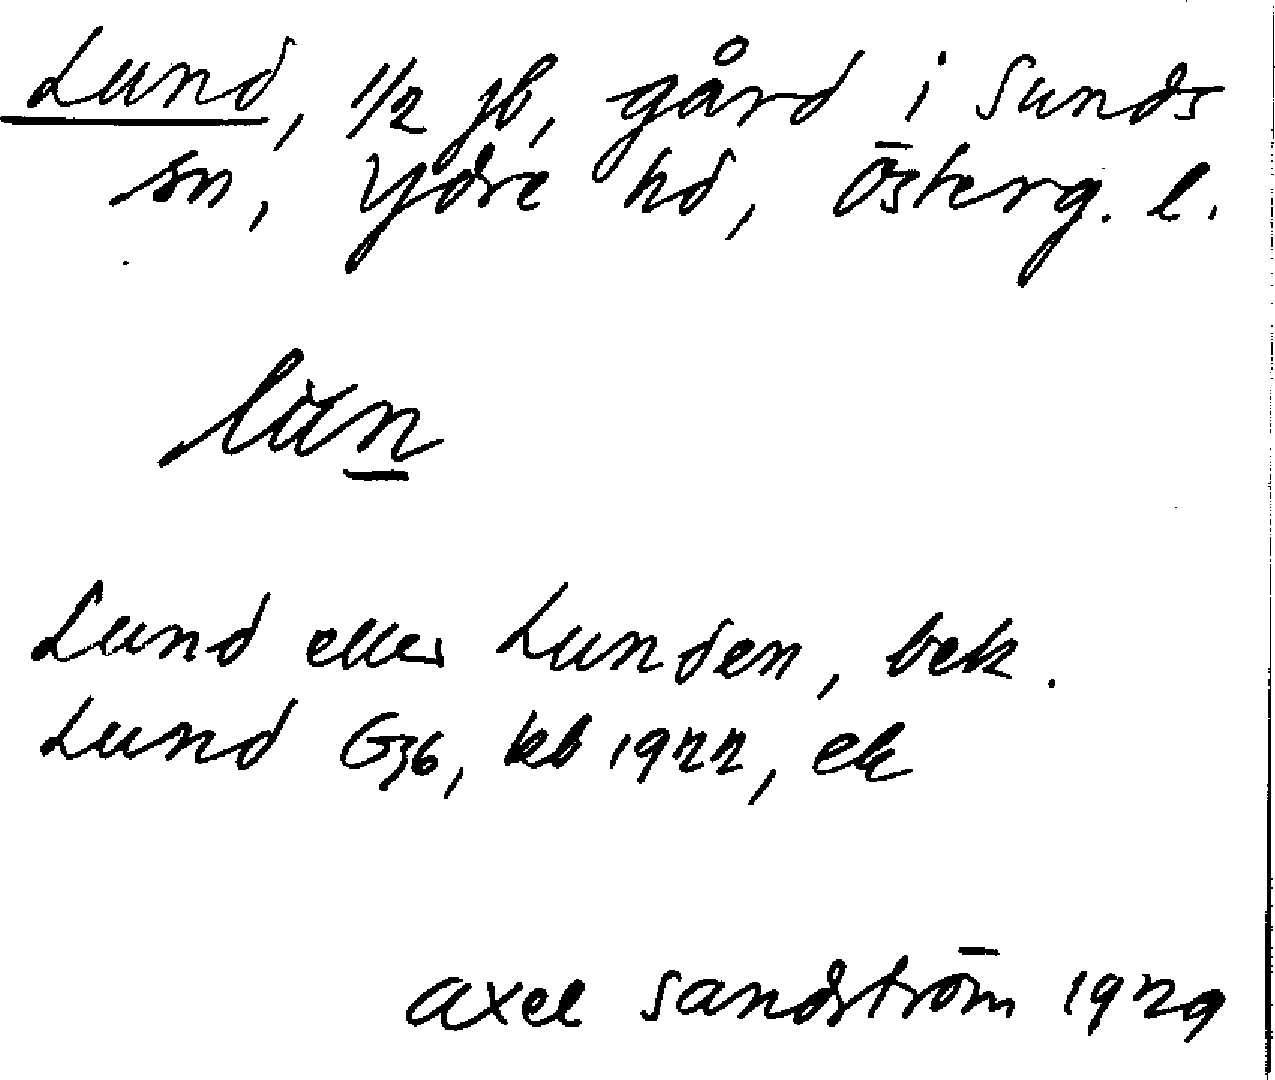 Lund, 1/2 jb, gård i Sunds
sn, Ydre hd, Österg. l.
Lund eller Lunden, bek.
Lund G36, kb 1922, ek
Axel Sandström 1929